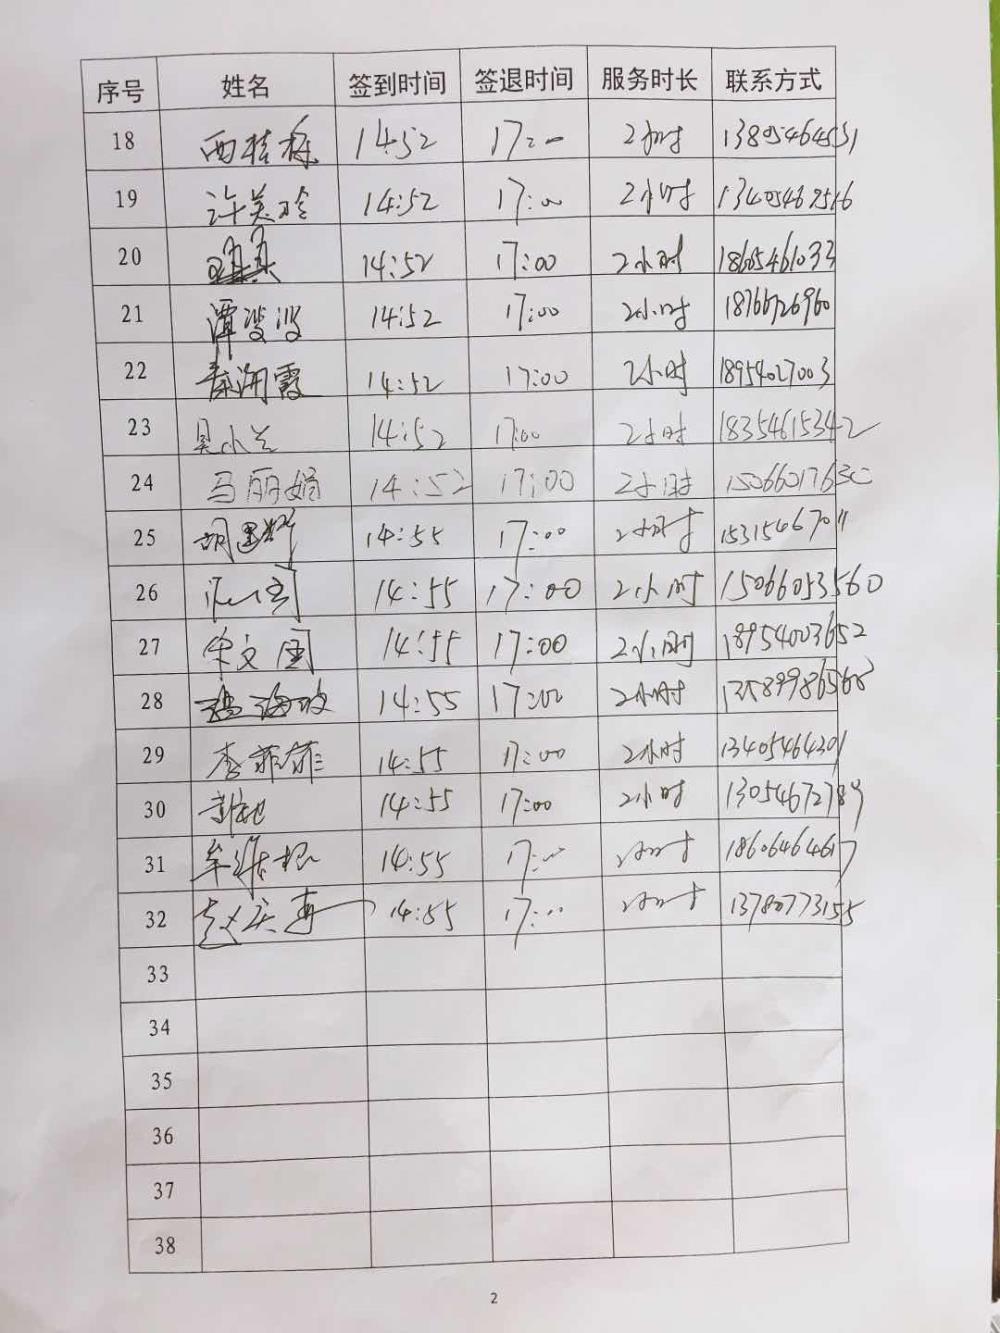 序号 姓名 签到时间 签退时间 服务时长 联系方式
18 14:52 17:00 2小时
19 许美玲 14:52 17:00 2小时
20 14:52 17:00 2小时 18605461033
21 谭波波 14:52 17:00 2小时 18766726960
22 秦海霞 14:52 17:00 2小时 18954027003
23 吴小兰 14:52 17:00 2小时 18354615342
24 马丽娟 14:52 17:00 2小时 15066017630
25 14:55 17:00 2小时 15315466711
26 14:55 17:00 2小时 15066053560
27 宋文国 14:55 17:00 2小时 18954003652
28 14:55 17:00 2小时
29 李菲菲 14:55 17:00 2小时 13405464301
30 14:55 17:00 2小时 13054672789
31 14:55 17:00 2小时
32 14:55 17:00 2小时 13780773155
33
34
35
36
37
38
2